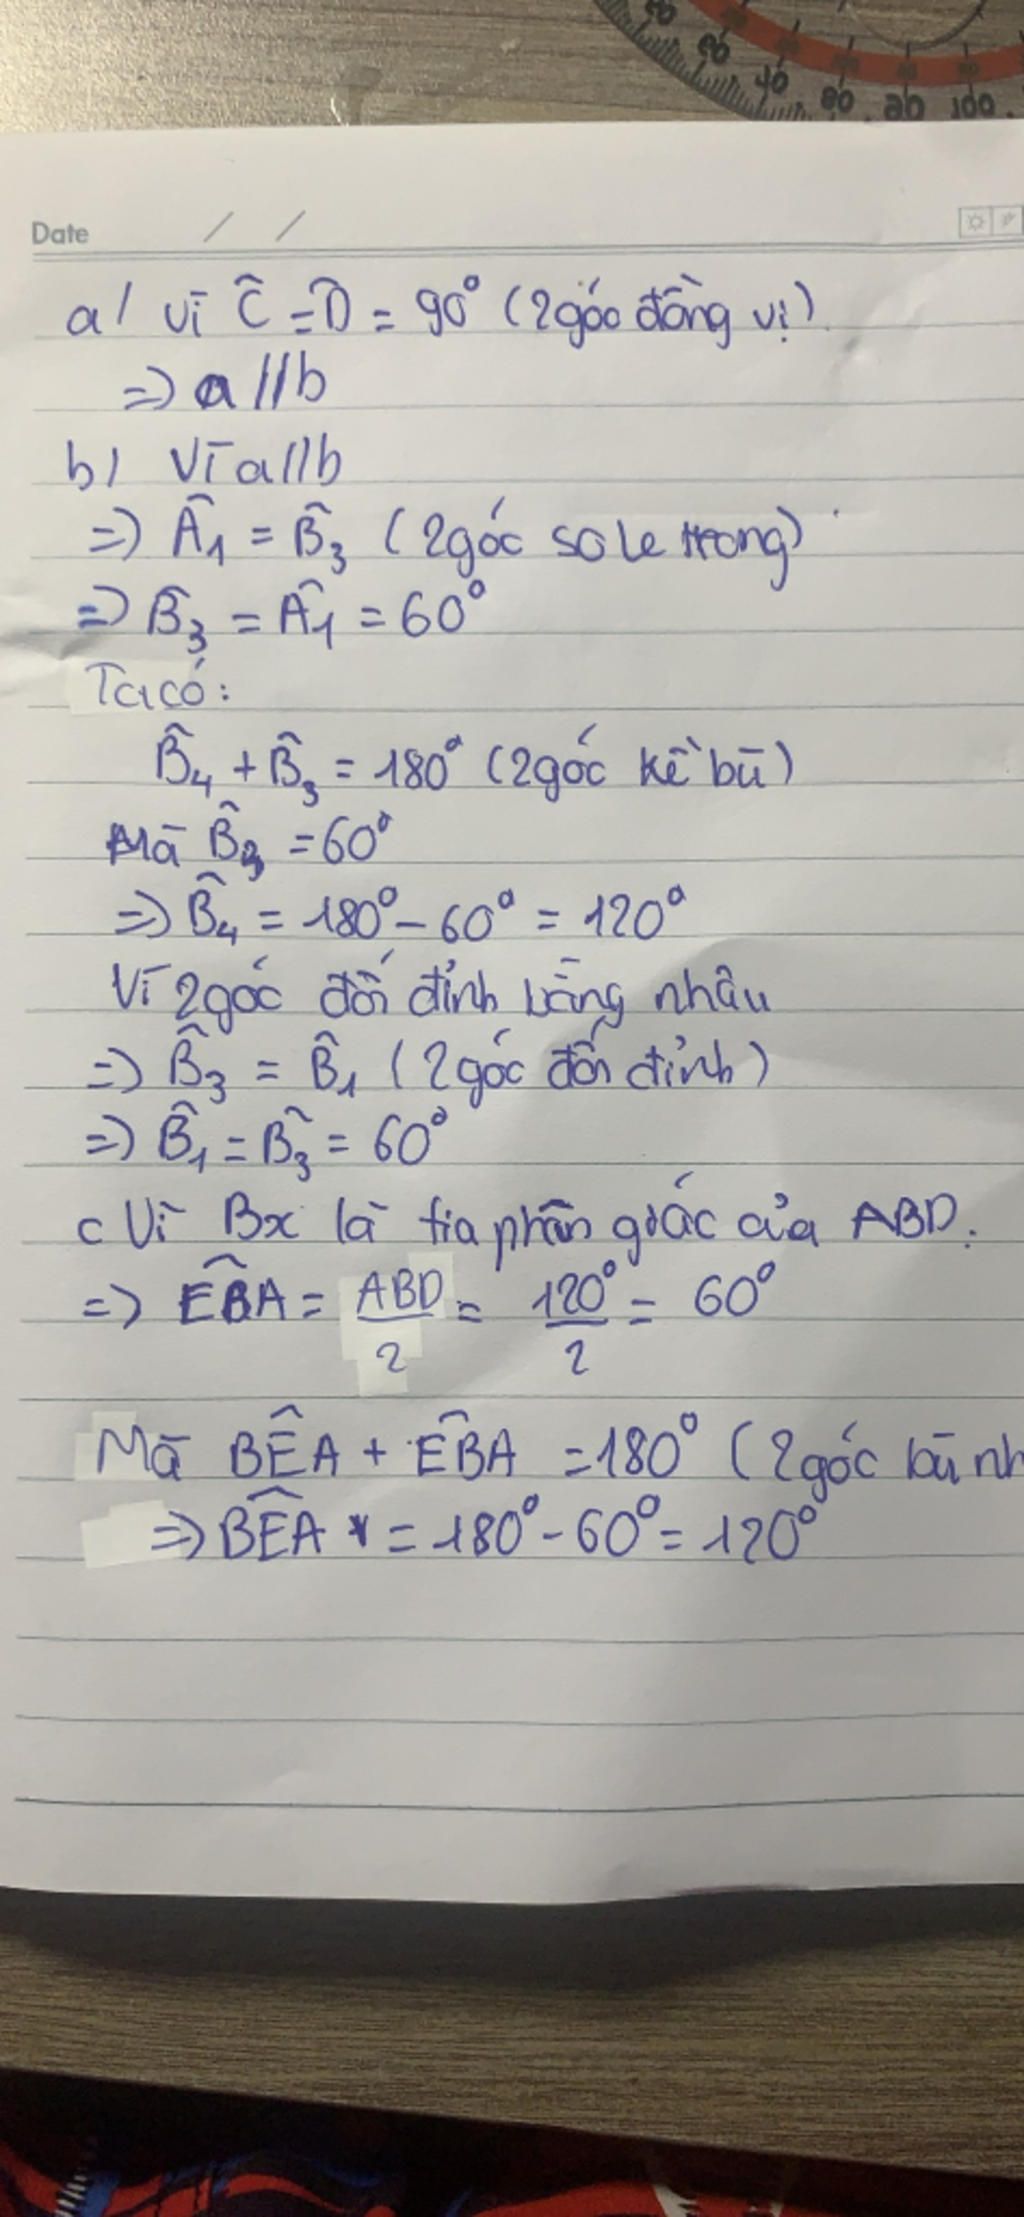 50 40 80 100
Date / /
a/ Vì Ĉ = D̂ = 90° (2 góc đồng vị)
=> a//b
b) Vì a//b
=> Â₁ = B̂₃ (2 góc so le trong)
=> B̂₃ = Â₁ = 60°
Ta có:
B̂₄ + B̂₃ = 180° (2 góc kề bù)
Mà B̂₃ = 60°
=> B̂₄ = 180° - 60° = 120°
Vì 2 góc đối đỉnh bằng nhâu
=> B̂₃ = B̂₁ (2 góc đối đỉnh)
=> B̂₁ = B̂₃ = 60°
c Vì Bx là tia phân giác của ABD.
=> EB̂A = ABD/2 = 120°/2 = 60°
Mà BÊA + EB̂A = 180° (2 góc bù nh
=> BÊA = 180° - 60° = 120°